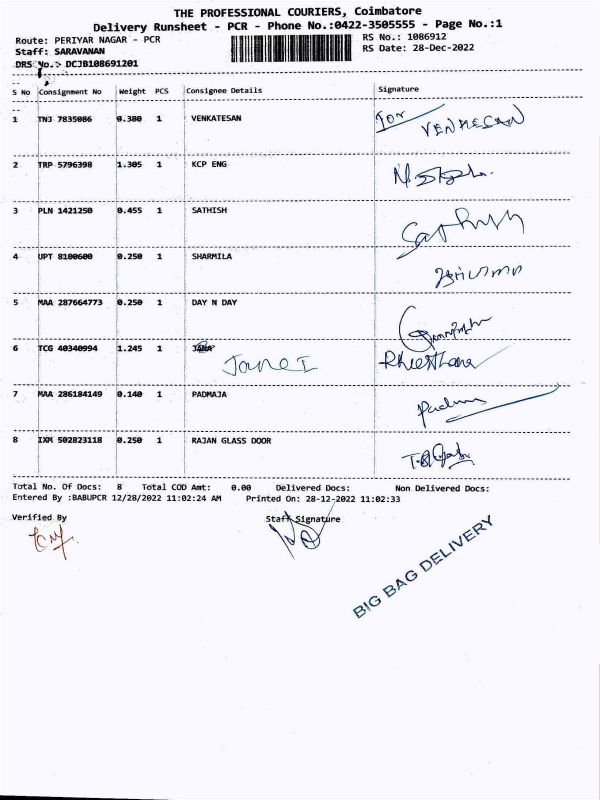 THE PROFESSIONAL COURIERS, Coimbatore
Delivery Runsheet - PCR - Phone No.:0422-3505555 - Page No.:1
Route: PERIYAR NAGAR - PCR RS No.: 1086912
Staff: SARAVANAN RS Date: 28-Dec-2022
DRS No.: DCJB108691201
S No Consignment No Weight PCS Consignee Details Signature
1 TNJ 7835086 0.380 1 VENKATESAN for VENKESAN
2 TRP 5796398 1.305 1 KCP ENG
3 PLN 1421250 0.455 1 SATHISH Sathish
4 UPT 8100600 0.250 1 SHARMILA
5 MAA 287664773 0.250 1 DAY N DAY
6 TCG 40340994 1.245 1 JANA
7 MAA 286184149 0.140 1 PADMAJA
8 IXM 502823118 0.250 1 RAJAN GLASS DOOR
Total No. Of Docs: 8 Total COD Amt: 0.00 Delivered Docs: Non Delivered Docs:
Entered By :BABUPCR 12/28/2022 11:02:24 AM Printed On: 28-12-2022 11:02:33
Verified By Staff Signature
BIG BAG DELIVERY